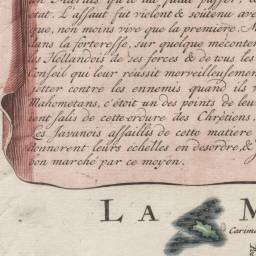 état. L'assaut fut violent & soutenu ave
que, non moins vive que la première. N
dans la forteresse, sur quelque mécontem
les Hollandois de ses forces & de tous les
Conseil qui leur réussit merveilleusemen
jetter contre les ennemis quand ils v
Mahometans, c'étoit un des points de leur
ient salis de cette ordure des Chrétiens,
Les Javanois assaillis de cette matiere
donnerent leurs échelles en desordre, &
bon marché par ce moyen.
LA M
Carim